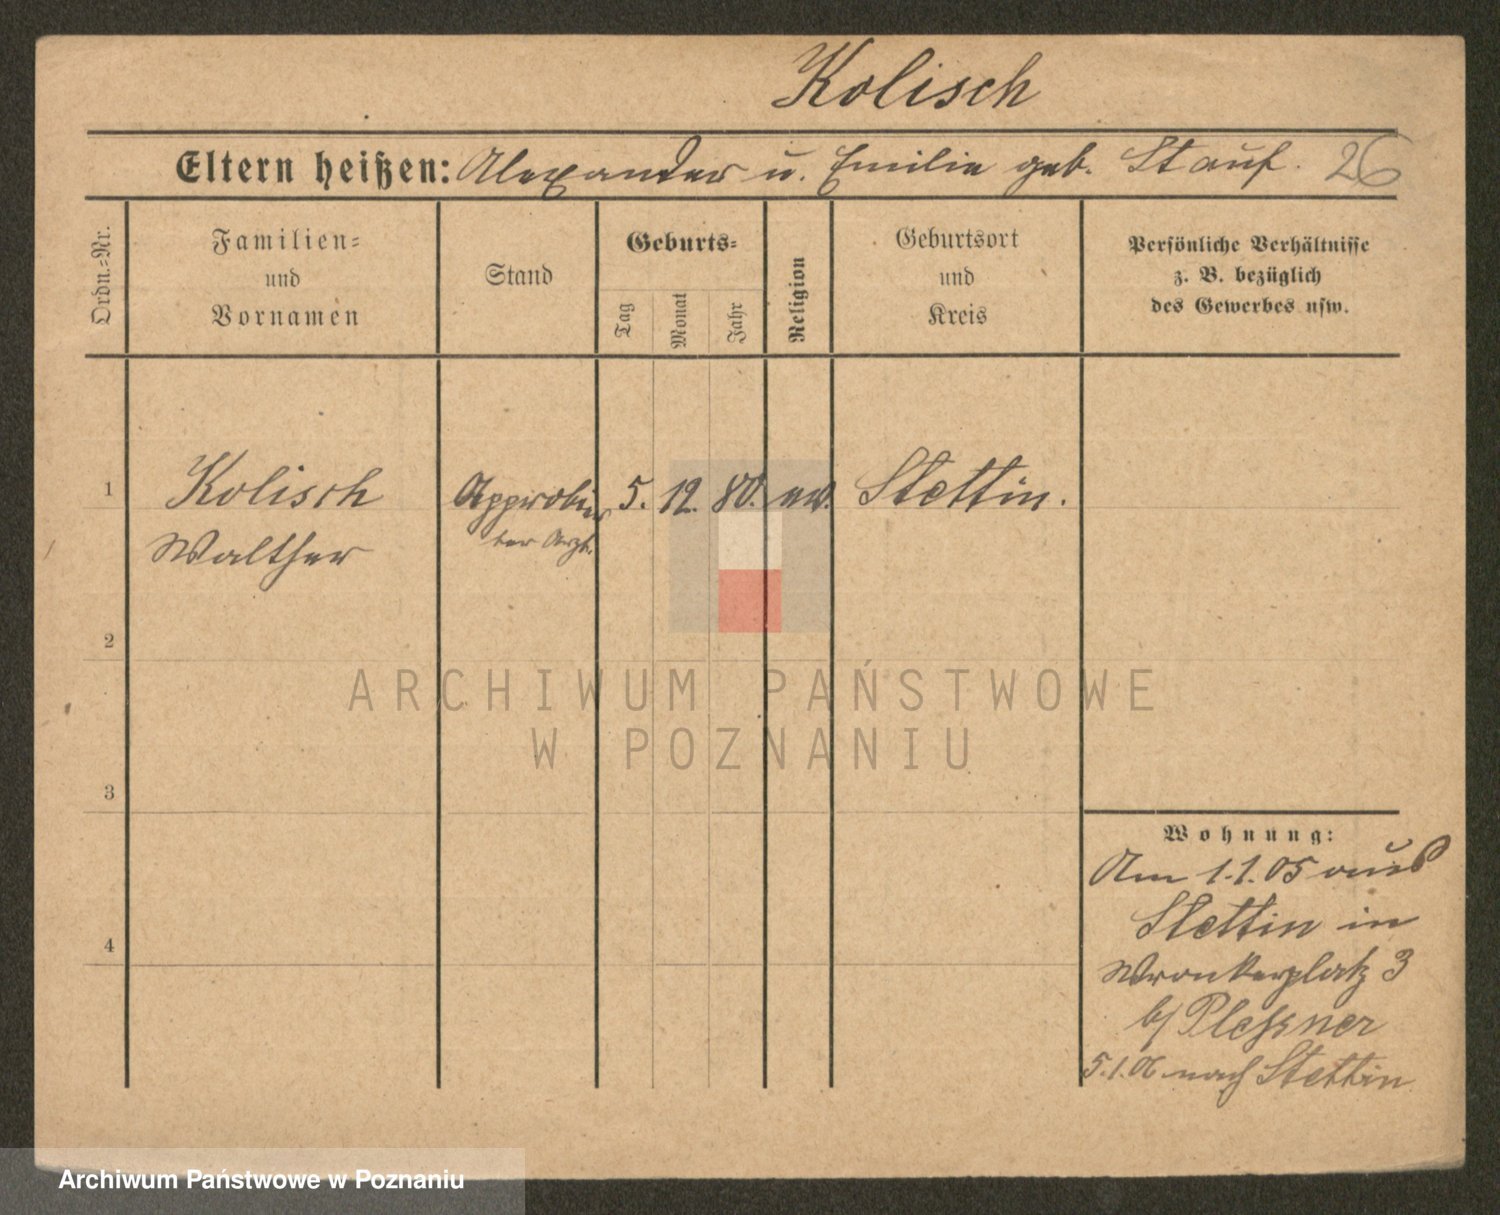 Kolisch
Eltern heißen: Alexander u. Emilie geb. Stauf. 26
Ordn.-Nr.
Familien-
und
Vornamen
Stand
Geburts-
Tag
Monat
Jahr
Religion
Geburtsort
und
Kreis
Persönliche Verhältnisse
z. B. bezüglich
des Gewerbes usw.
1 Kolisch Approbir 5. 12. 80. ev. Stettin.
Walther ter Arzt.
2
3
4
ARCHIWUM PAŃSTWOWE
W POZNANIU
Wohnung:
Am 1.1.05 aus
Stettin in
Wronkerplatz 3
b/ Plessner
5.1.06 nach Stettin
Archiwum Państwowe w Poznaniu